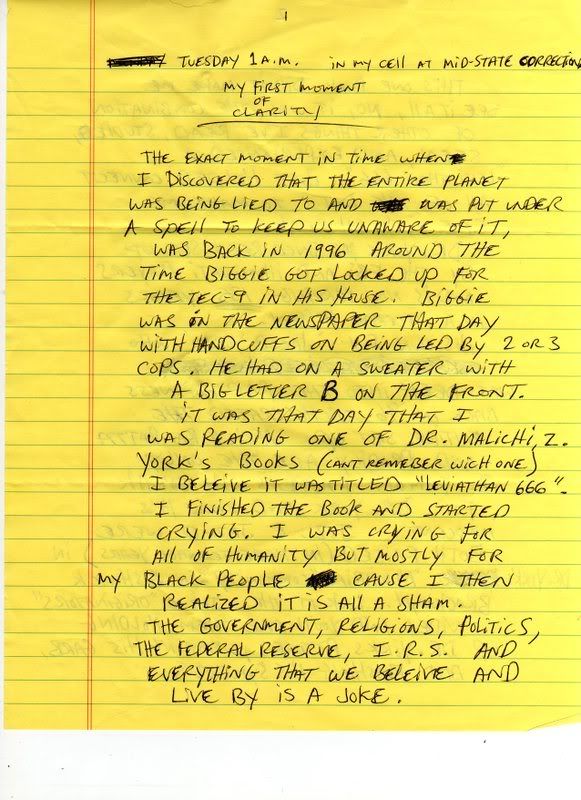 1
TUESDAY 1 A.M. IN MY CELL AT MID-STATE CORRECTION
MY FIRST MOMENT
OF
CLARITY
THE EXACT MOMENT IN TIME WHEN
I DISCOVERED THAT THE ENTIRE PLANET
WAS BEING LIED TO AND WAS PUT UNDER
A SPELL TO KEEP US UNAWARE OF IT,
WAS BACK IN 1996 AROUND THE
TIME BIGGIE GOT LOCKED UP FOR
THE TEC-9 IN HIS HOUSE. BIGGIE
WAS ON THE NEWSPAPER THAT DAY
WITH HANDCUFFS ON BEING LED BY 2 OR 3
COPS. HE HAD ON A SWEATER WITH
A BIG LETTER B ON THE FRONT.
IT WAS THAT DAY THAT I
WAS READING ONE OF DR. MALICHI, Z.
YORK'S BOOKS (CANT REMEBER WICH ONE)
I BELEIVE IT WAS TITLED "LEVIATHAN 666".
I FINISHED THE BOOK AND STARTED
CRYING. I WAS CRYING FOR
ALL OF HUMANITY BUT MOSTLY FOR
MY BLACK PEOPLE CAUSE I THEN
REALIZED IT IS ALL A SHAM.
THE GOVERNMENT, RELIGIONS, POLITICS,
THE FEDERAL RESERVE, I.R.S. AND
EVERYTHING THAT WE BELEIVE AND
LIVE BY IS A JOKE.